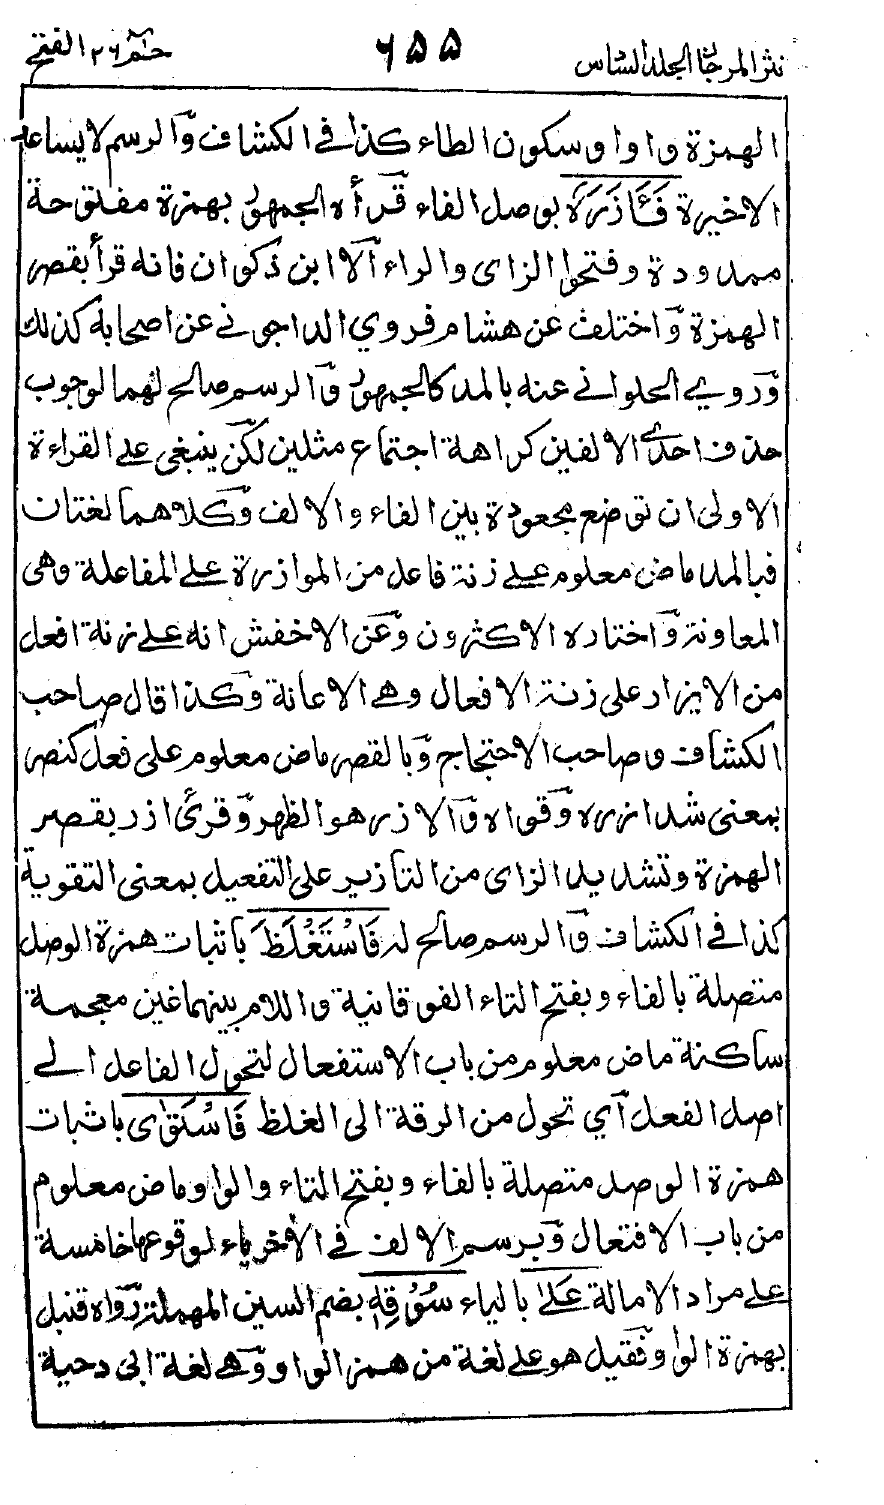 نثر المرجان الجلد السادس
٦٥٥
حٰم ٢٦ الفتح
الهمزة واوا وسكون الطاء كذا في الكشاف وَالرسم لا يساعد
الاخيرة فَـَٔازَرَهٗ بوصل الفاء قرأه الجمهور بهمزة مفتوحة
ممدودة وفتحوا الزاى والراء الا ابن ذكوان فانه قرأ بقصر
الهمزة واختلف عن هشام فروي الداجونى عن اصحابه كذلك
وروي الحلوانى عنه بالمد كالجمهور والرسم صالح لهما لوجوب
حذف احدى الالفين كراهة اجتماع مثلين لكن ينبغى على القراءة
الاولى ان توضع مجعودة بين الفاء والالف وكلاهما لغتان
فبالمد ماض معلوم على زنة فاعل من الموازرة على المفاعلة وهى
المعاونة واختاره الاكثرون وعن الاخفش انه على زنة افعل
من الايزار على زنة الافعال وهى الاعانة وكذا قال صاحب
الكشاف وصاحب الاحتجاج وبالقصر ماض معلوم على فعل كنصر
بمعنى شد ازره وقواه والازر هو الظهر وقرئ ازر بقصر
الهمزة وتشديد الزاى من التازير على التفعيل بمعنى التقوية
كذا في الكشاف والرسم صالح له فَاسْتَغْلَظَ باثبات همزة الوصل
متصلة بالفاء وبفتح التاء الفوقانية واللام بينهما غين معجمة
ساكنة ماض معلوم من باب الاستفعال لتحول الفاعل الى
اصل الفعل اي تحول من الرقة الى الغلظ فَاسْتَوٰى باثبات
همزة الوصل متصلة بالفاء وبفتح التاء والواو ماض معلوم
من باب الافتعال وبرسم الالف في الاخر ياء لوقوعها خامسة
على مراد الامالة عَلٰى بالياء سُوْقِهٖ بضم السين المهملة رواه قنبل
بهمزة الواو فقيل هو على لغة من همز الواو وهى لغة ابى دحية